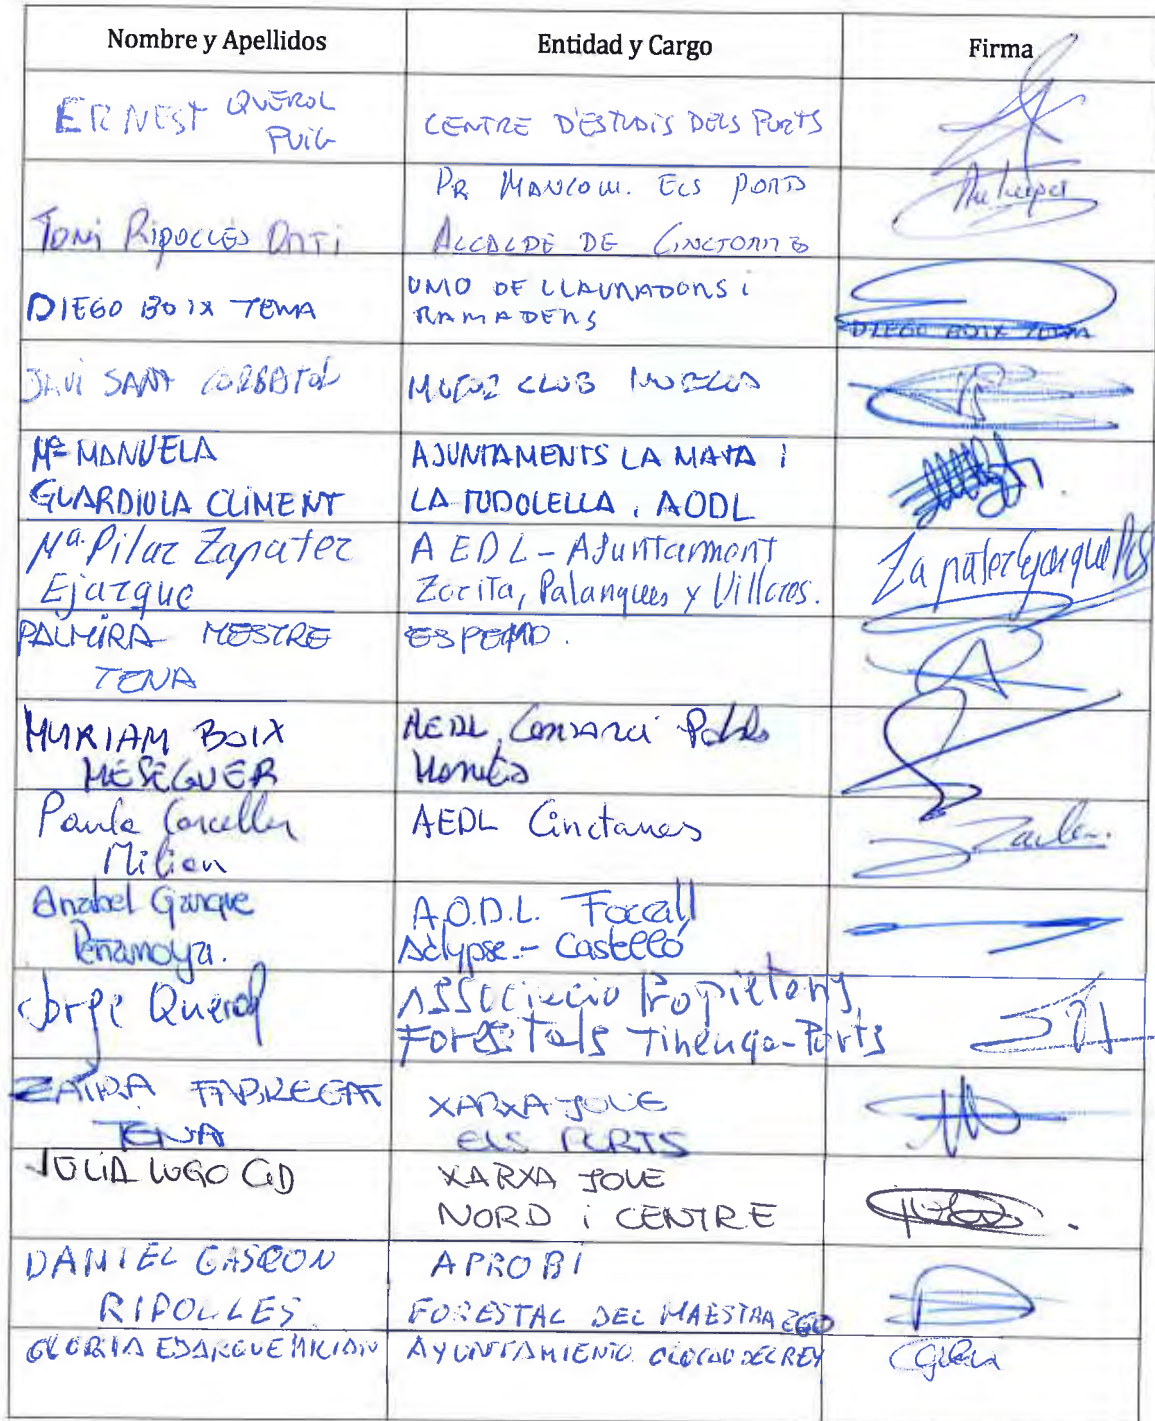 Nombre y Apellidos
Entidad y Cargo
Firma
ERNEST QUEROL
PUIG
CENTRE D'ESTUDIS DELS PORTS
TONI RIPOLLÉS ORTÍ
PR MANCOM. ELS PORTS
ALCALDE DE CINCTORRES
DIEGO BOIX TENA
UNIO DE LLAURADORS i
RAMADERS
DIEGO BOIX TENA
JAVI SANT CORBATÓN
CLUB MORELLA
Mª MANUELA
GUARDIOLA CLIMENT
AJUNTAMENTS LA MATA i
LA TODOLELLA, AODL
Mª Pilar Zapater
Ejarque
AEDL - Ajuntament
Zorita, Palanques y Villores.
Zapater Ejarque
PALMIRA MESTRE
TENA
ESPEMO.
MYRIAM BOIX
MESEGUER
AEDL Consorci Poble
Paula Carceller
Milian
AEDL Cinctorres
Anabel Gargue
Peñarroya.
A.O.D.L. Forcall
- Castelló
Jorge Querol
ASSOCIACIO Propietaris
Forestals Tinença-Ports
ZAIRA FABREGAT
TENA
XARXA JOVE
ELS PORTS
JULIA LUGO CID
XARXA JOVE
NORD i CENTRE
DANIEL GASCON
RIPOLLES
APROBI
FORESTAL DEL MAESTRAZGO
GLORIA EJARQUE MILIAN
AYUNTAMIENTO OLOCAU DEL REY